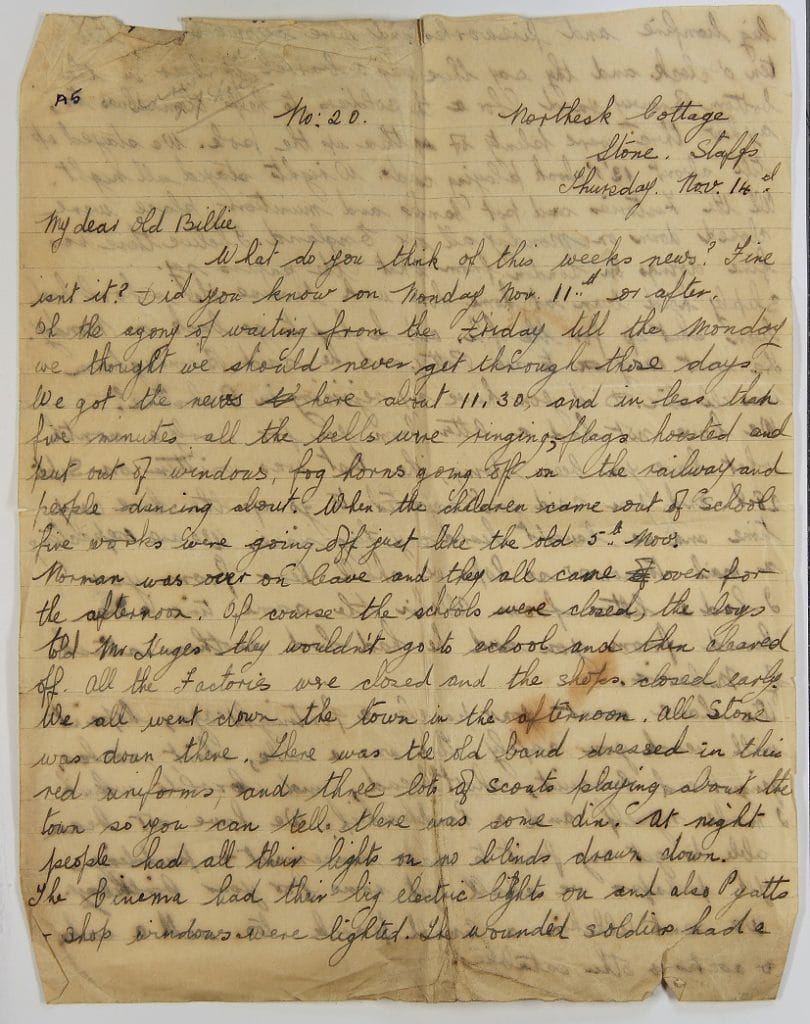 A5
No: 20.
Northesk Cottage
Stone. Staffs
Thursday. Nov. 14th
My dear old Billie
What do you think of this weeks news? Fine
isn't it? Did you know on Monday Nov. 11th or after.
Oh the agony of waiting from the Friday till the Monday
we thought we should never get through those days.
We got the news here about 11.30, and in less than
five minutes all the bells were ringing, flags hoisted and
put out of windows, fog horns going off on the railway and
people dancing about. When the children came out of school
fire works were going off just like the old 5th Nov.
Norman was over on leave and they all came over for
the afternoon. Of course the schools were closed, the boys
told Mr Huges they wouldn't go to school and then cleared
off. All the Factories were closed and the shops closed early.
We all went down the town in the afternoon. All Stone
was down there. There was the old band dressed in their
red uniforms, and three lots of scouts playing about the
town so you can tell there was some din. At night
people had all their lights on no blinds drawn down.
The Cinema had their big electric lights on and also Pyatts
shop windows were lighted. The wounded soldiers had a